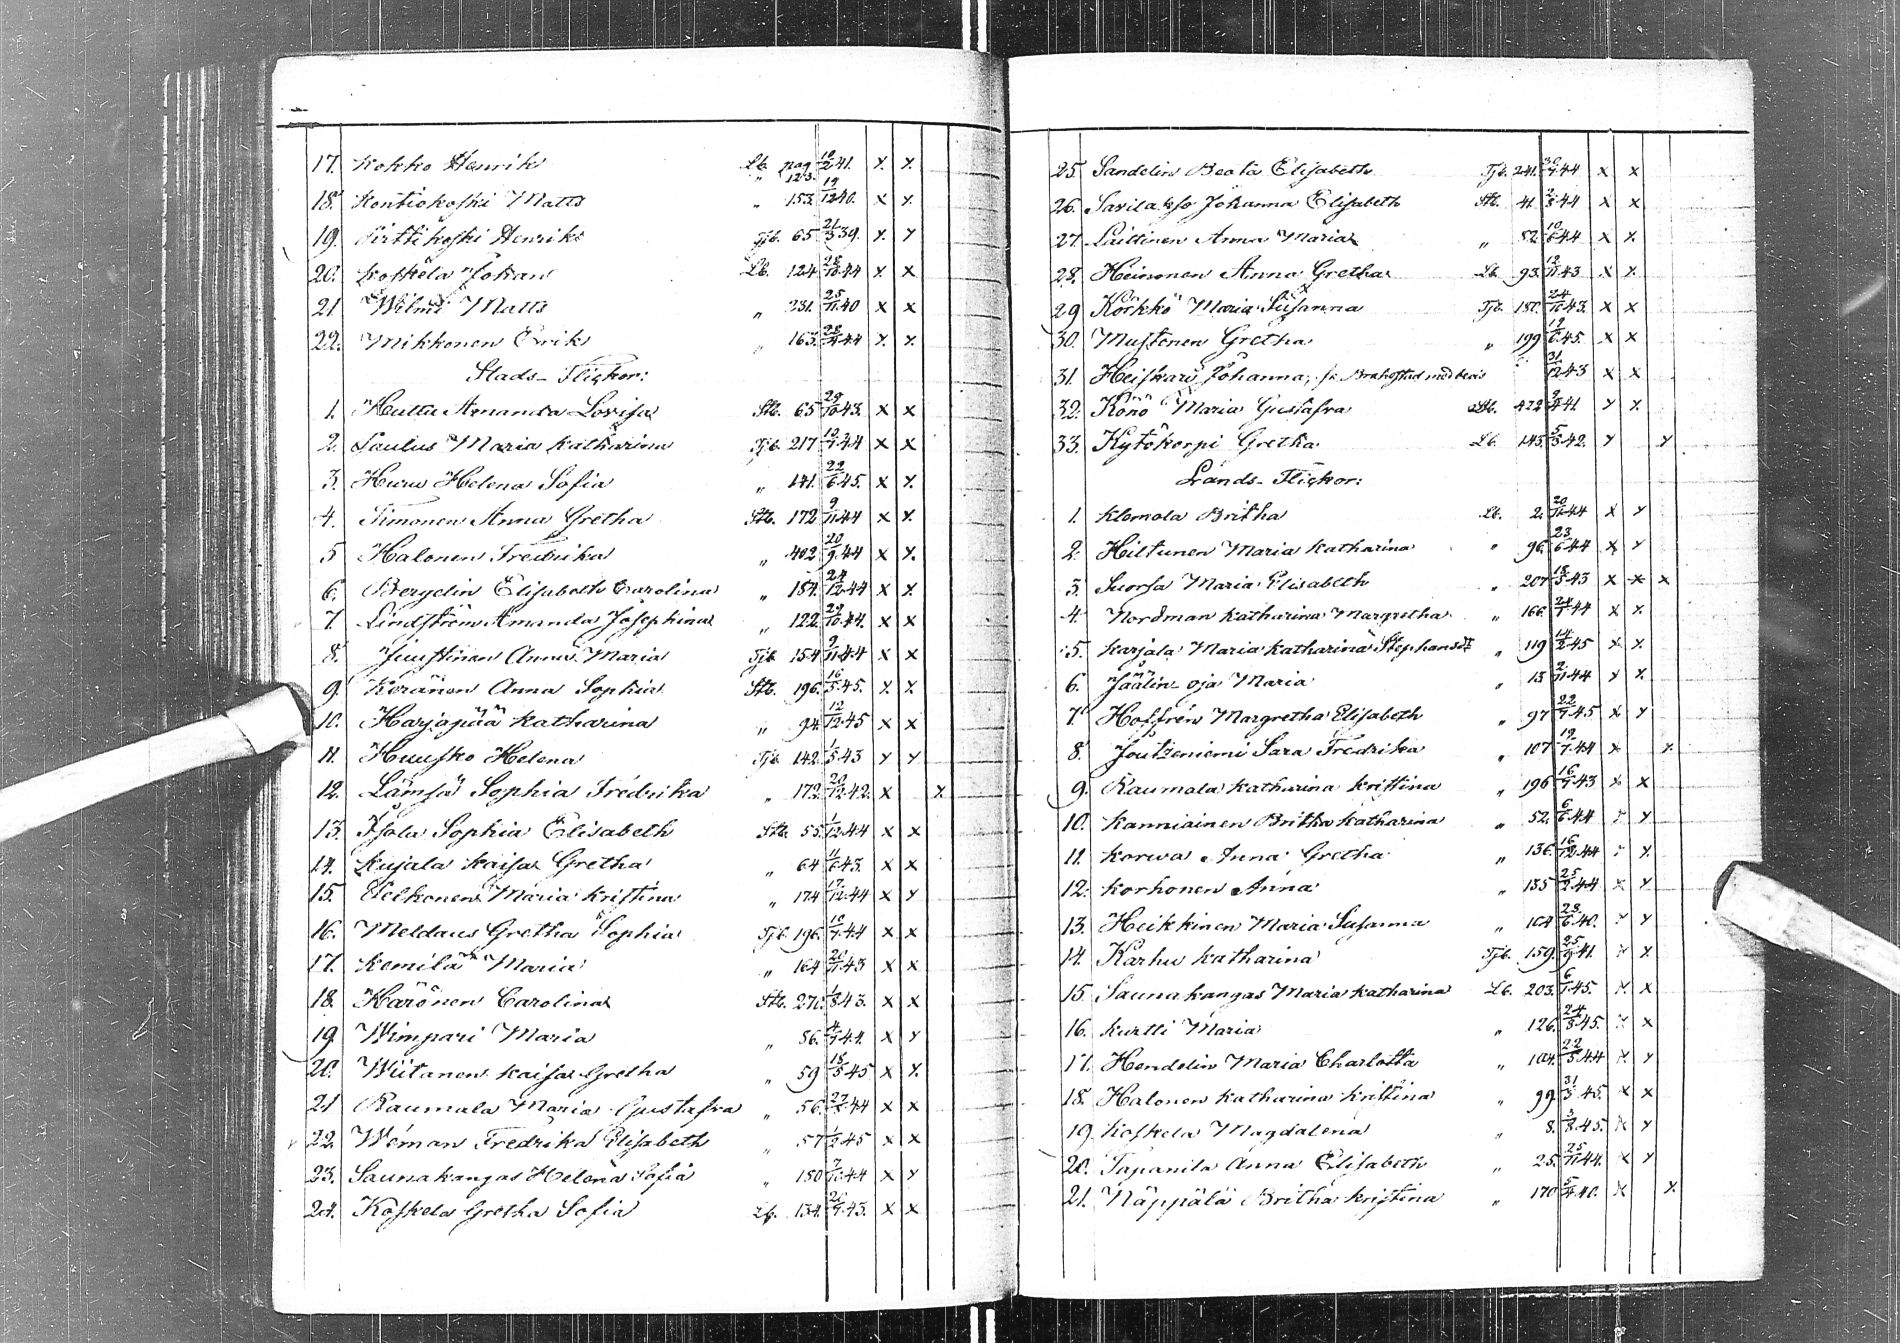 17. Kokko Henrik Lb. pag. 123. 10/2 41. x x
18. Kontiokoski Matts " 153. 19/12 40. x x
19. Pirttikoski Henrik Tjb. 65 21/3 39. x x
20. Koskela Johan Lb. 124 28/10 44 x x
21 Wilmi Matts " 231. 25/11 40 x x
22. Mikkonen Erik " 163. 28/9 44 x x
Stads-Flickor:
1. Huttu Amanda Lovisa Stb. 65 29/10 43. x x
2. Paulus Maria Katharina Tjb. 217 12/7 44 x x
3. Huru Helena Sofia " 141. 22/6 45. x x
4. Simonen Anna Gretha Stb. 172 9/11 44 x x
5 Halonen Fredrika " 402 20/9 44 x x
6. Bergelin Elisabeth Carolina " 184. 24/12 44 x x
7. Lindström Amanda Josephina " 122. 29/10 44. x x
8. Juustinen Anna Maria Tjb. 154 2/11 44 x x
9. Keränen Anna Sophia Stb. 196. 16/5 45. x x
10. Harjapää Katharina " 94. 12/12 45 x x
11. Huusko Helena Tjb. 142. 1/5 43 x x
12. Lämsä Sophia Fredrika " 172. 20/12 42. x x
13. Isola Sophia Elisabeth Stb. 55. 1/12 44 x x
14. Kujala Kaisa Gretha " 64 11/6 43. x x
15. Maria Kristina " 174 17/12 44 x x
16. Meldaus Gretha Sophia Tjb. 196. 10/7 44 x x
17. Kemilä Maria " 164 26/11 43 x x
18. Härönen Carolina Stb. 270. 1/8 43. x x
19. Wimpari Maria " 56. 4/9 44. x x
20. Wiitanen Kaisa Gretha " 59 18/5 45 x x
21 Raumala Maria Gustafva " 56. 44 x x
22. Wöman Fredrika Elisabeth " 57 45 x x
23. Saunakangas Helena Sofia " 150 7/10 44 x x
24. Koskela Gretha Sofia Lb. 134. 26/9 43. x x
25. Sandelin Beata Elisabeth Tjb. 241. 44 x x
26. Savilakso Johanna Elisabeth Stb. 41. 2/8 44 x x
27. Laittinen Anna Maria " 52. 10/6 44 x x
28. Heinonen Anna Gretha Lb. 93. 12/11 43 x x
29 Körkkö Maria Susanna Tjb. 180. 24/10 43. x x
30. Mustonen Gretha " 199 12/6 45. x x
31. Heiskari Johanna, fr. Brahestad med bevis 31/12 43 x x
32. Könö Maria Gustafva Stb. 472 41. x x
33. Kytökorpi Gretha Lb. 145. 5/3 42. x x
Lands-Flickor:
1. Klemola Britha Lb. 2. 20/10 44 x x
2. Hiltunen Maria Katharina " 96. 23/6 44 x x
3. Suorsa Maria Elisabeth " 207 18/3 43 x x x
4. Nordman Katharina Margretha " 166. 24/7 44 x x
5. Karjala Maria Katharina Stephansdt " 119 14/2 45 x x
6. Jäälinoja Maria " 13 2/11 44 x x
7 Hoffrén Margretha Elisabeth " 97 22/7 45 x x
8. Joutzeniemi Sara Fredrika " 107 19/7 44 x x
9. Raumala Katharina Kristina " 196 16/7 43 x x
10. Kanniainen Britha Katharina " 52. 6/6 44 x x
11. Korwa Anna Gretha " 136. 16/12 44 x x
12. Korhonen Anna " 135 25/2 44 x x
13. Heikkinen Maria Susanna " 104 23/6 40. x x
14. Karhu Katharina Tjb. 159. 25/9 41. x x
15. Saunakangas Maria Katharina Lb. 203. 6/1 45. x x
16. Kurtti Maria " 126. 24/3 45. x x
17. Hendelin Maria Charlotta " 104. 22/5 44 x x
18. Halonen Katharina Kristina " 99 31/3 45. x x
19. Koskela Magdalena " 8. 3/3 45. x x
20. Tapanila Anna Elisabeth " 25. 25/11 44. x x
21. Näppälä Britha Kristina " 170 5/4 40. x x